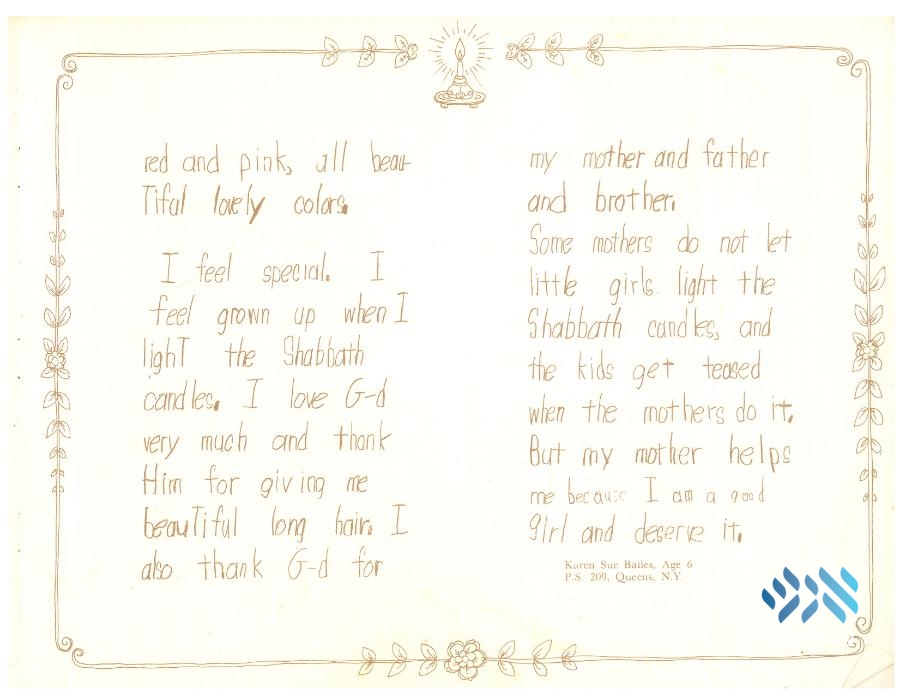 red and pink, all beau-
tiful lovely colors.
I feel special. I
feel grown up when I
light the Shabbath
candles. I love G-d
very much and thank
Him for giving me
beautiful long hair. I
also thank G-d for
my mother and father
and brother.
Some mothers do not let
little girls light the
Shabbath candles, and
the kids get teased
when the mothers do it.
But my mother helps
me because I am a good
girl and deserve it.
Karen Sue Bailes, Age 6
P.S. 209, Queens, N.Y.